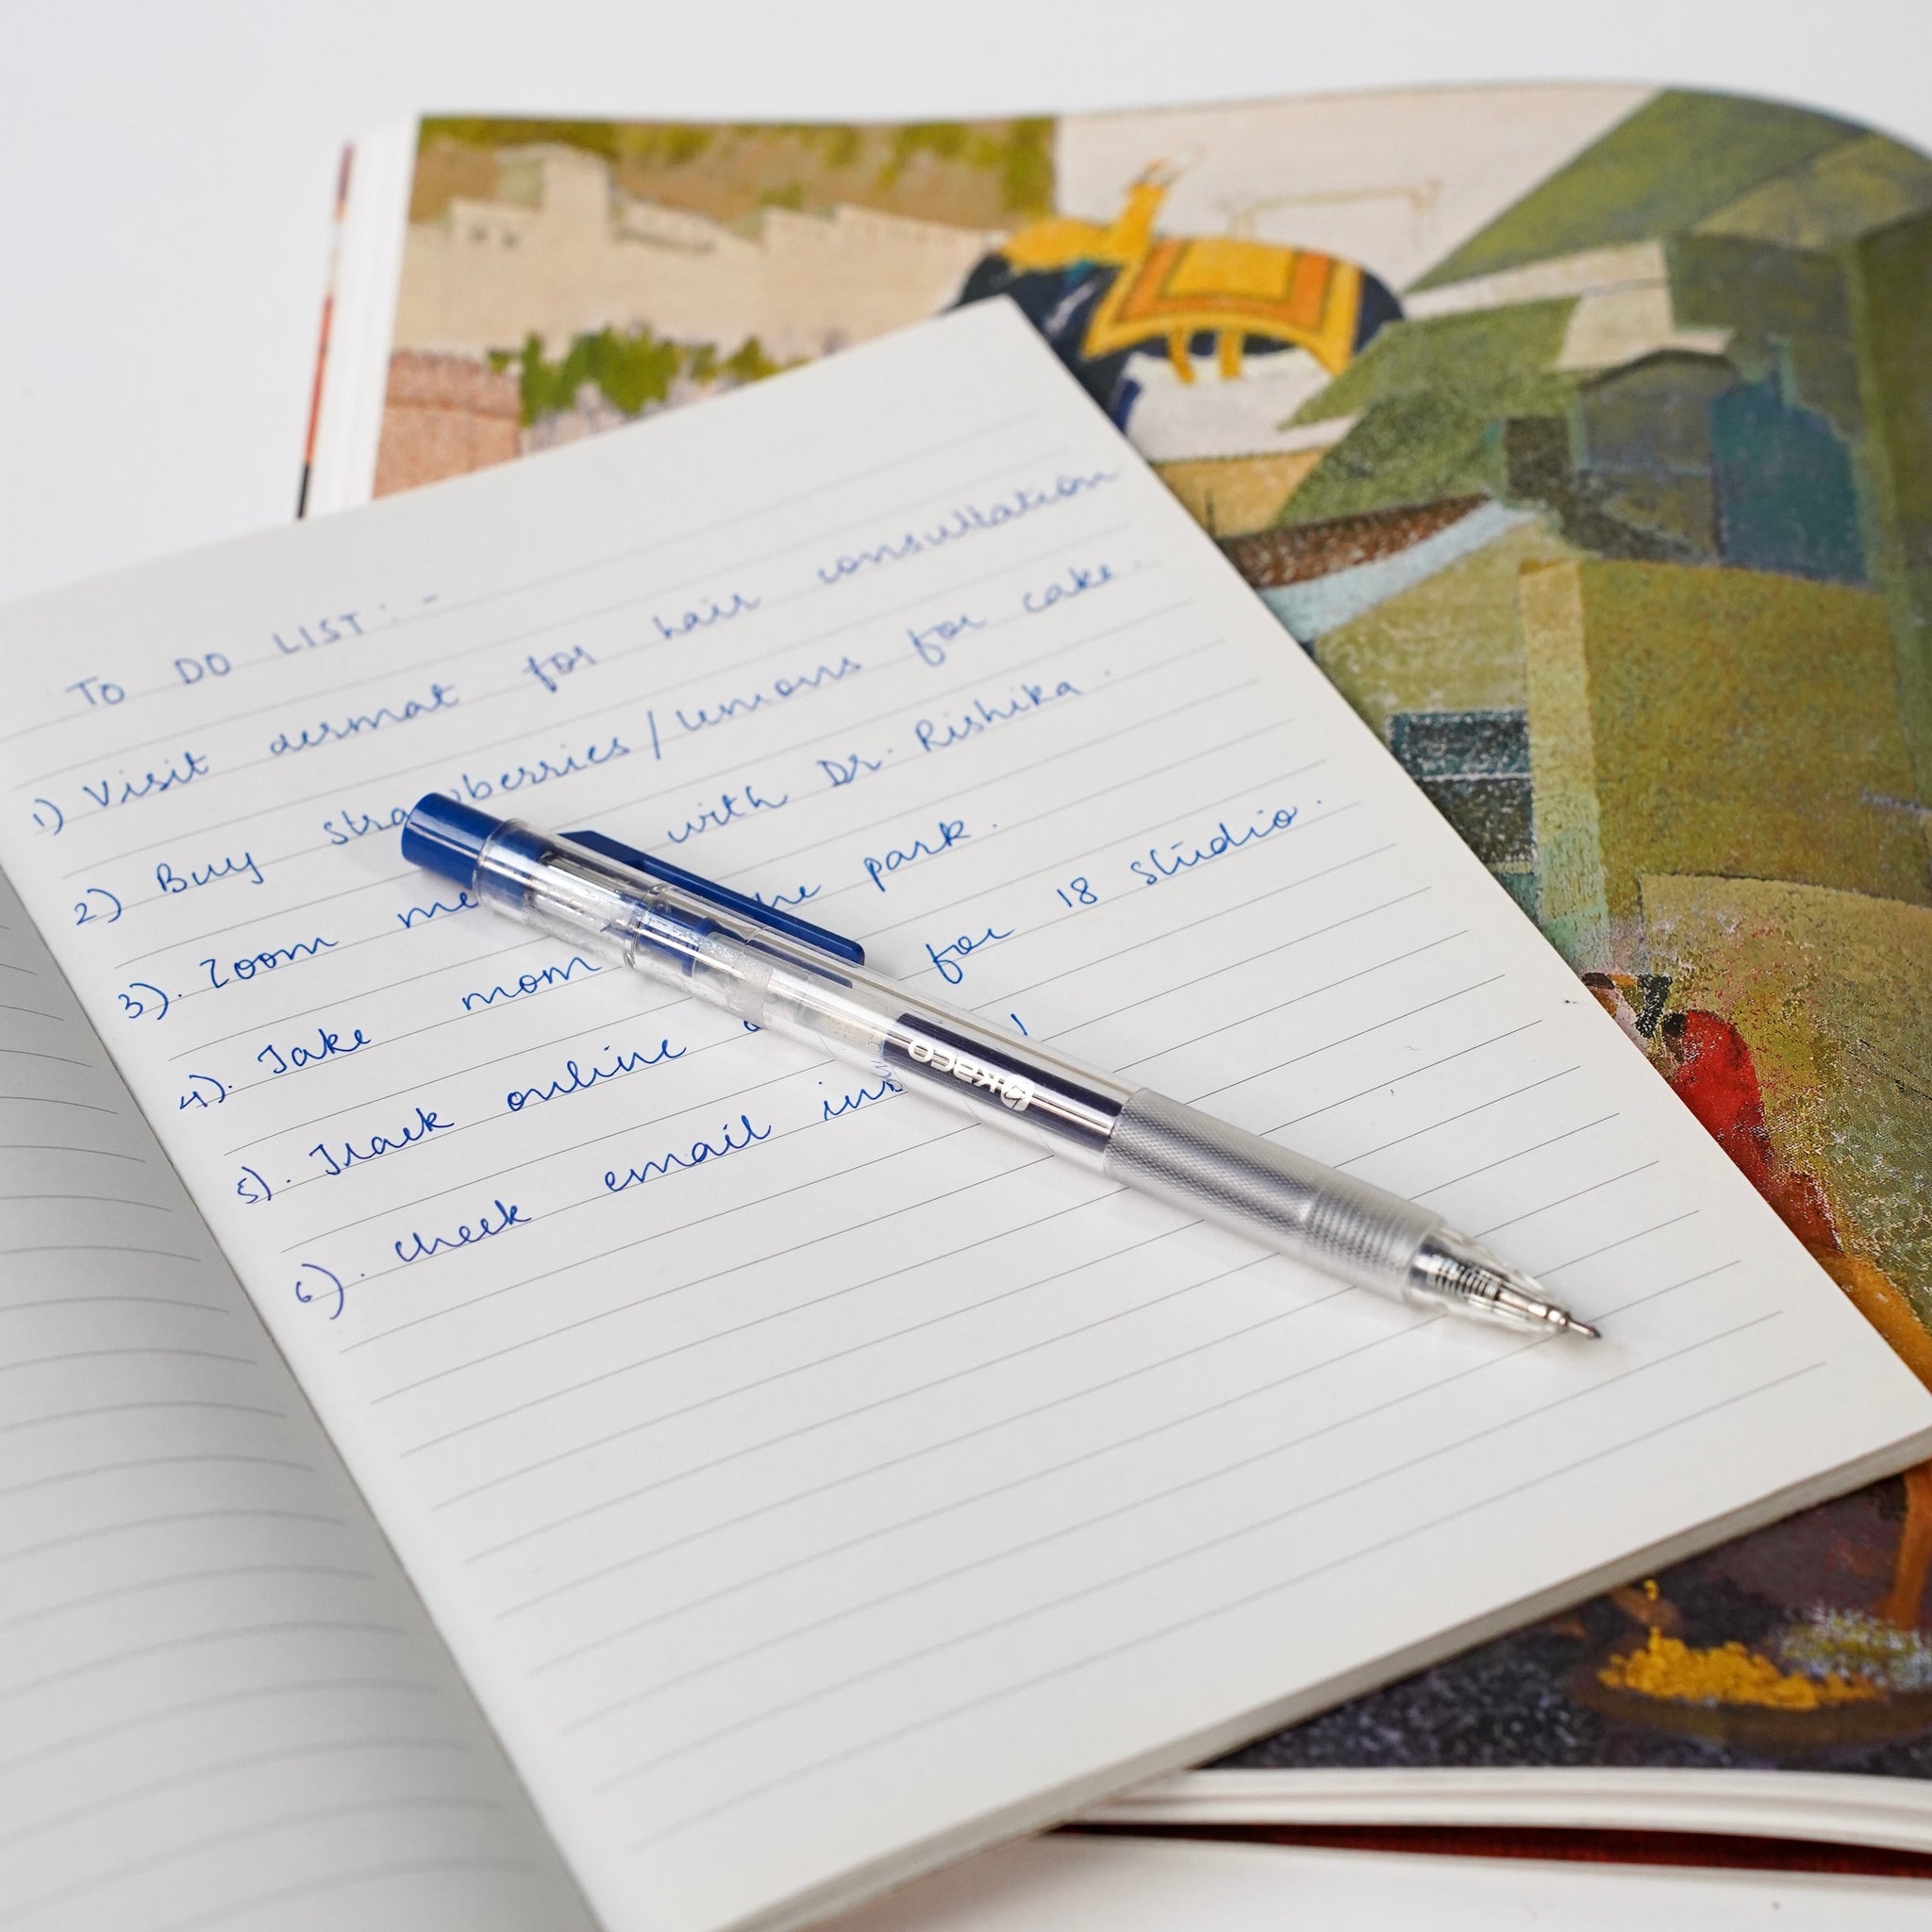 TO DO LIST : -
1) Visit dermat for hair consultation
2) Buy strawberries / lemons for cake.
3). Zoom me with Dr. Rishika.
4). Take mom park.
5). Track online for 18 studio.
6). check email
kaco